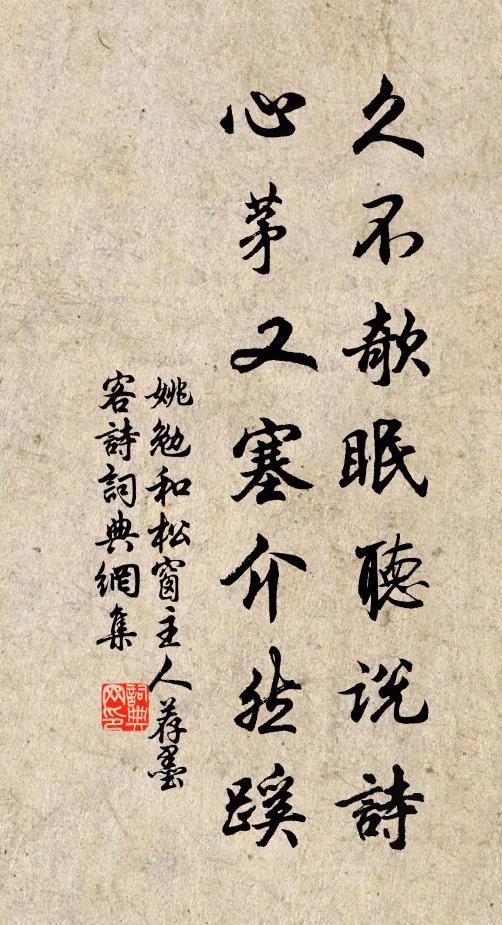 久不欹眠聽說詩
心茅又塞介然蹊
姚勉和松窗主人荐墨
客詩詞典網集
詞典
网印